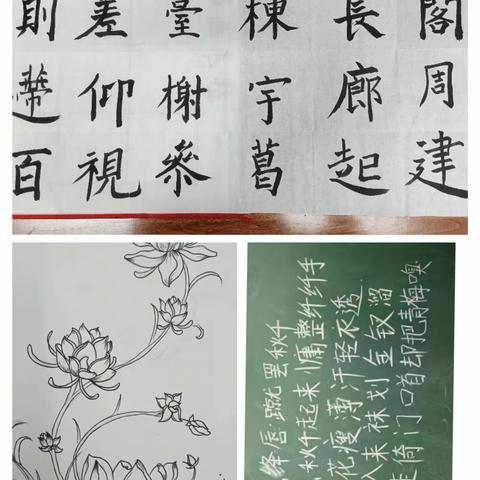 閣周建
長廊起
棟宇葛
臺榭參
差仰視
則遰百
绛唇·蹴罢秋千
秋千起来慵整纤纤手
花瘦薄汗轻衣透
入来袜划金钗溜
走倚门回首却把青梅嗅